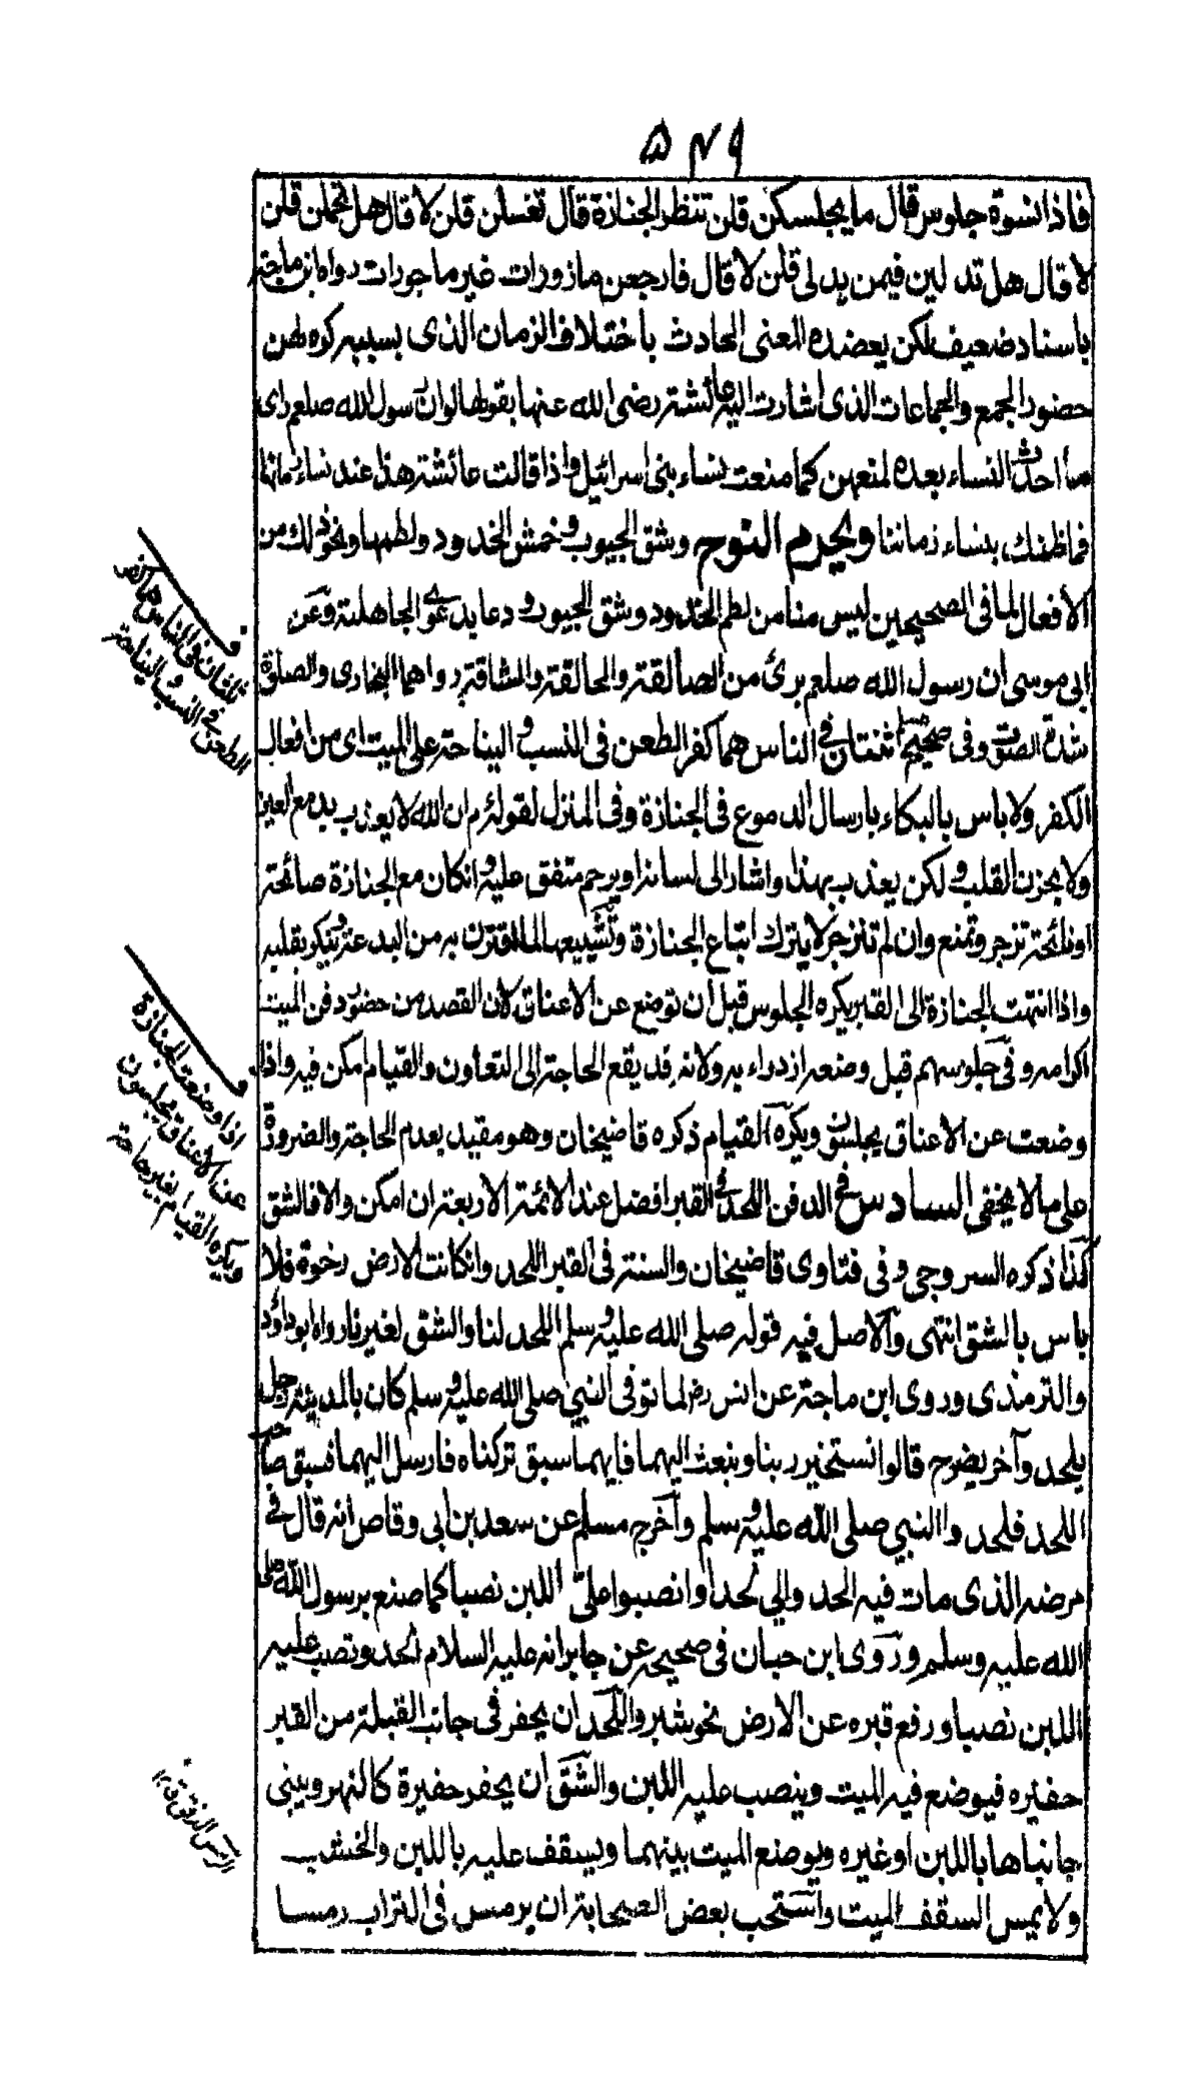 ۵۴۹
فاذا نسوة جلوس قال ما يجلسكن قلن ننتظر الجنازة قال تغسلن قلن لا قال هل تحملن قلن
لا قال هل تدلين فيمن يدلى قلن لا قال فارجعن مازورات غير ماجورات رواه ابن ماجة
باسناد ضعيف لكن يعضده المعنى الحادث باختلاف الزمان الذى بسببه كره لهن
حضور الجمع والجماعات الذى اشارت اليه عائشة رضى الله عنها بقولها لو ان رسول الله صلعم راى
ما احدث النساء بعده لمنعهن كما منعت نساء بنى اسرائيل واذا قالت عائشة هذا عند نساء زمانها
فما ظنك بنساء زماننا ويحرم النوح وشق الجيوب وخمش الخدود ولطمها ونحو ذلك من
الافعال لما فى الصحيحين ليس منا من لطم الخدود وشق الجيوب ودعا بدعوى الجاهلية وعن
ابى موسى ان رسول الله صلعم برئ من الصالقة والحالقة والشاقة رواهما البخارى والصلق
شدة الصوت وفى صحيح مسلم ثنتان فى الناس هما كفر الطعن فى النسب والنياحة على الميت اى من افعال
الكفر ولا باس بالبكاء بارسال الدموع فى الجنازة وفى المنزل لقوله ع م ان الله لا يعذب بدمع العين
ولا بحزن القلب ولكن يعذب بهذا واشار الى لسانه او يرحم متفق عليه وانكان مع الجنازة صائحة
او نائحة تزجر وتمنع وان لم تنزجر لا يترك اتباع الجنازة وتشييعها لما اقترن به من البدعة وينكر بقلبه
واذا انتهت الجنازة الى القبر يكره الجلوس قبل ان توضع عن الاعناق لان القصد من حضور دفن الميت
اكرامه وفى جلوسهم قبل وضعه ازدراء به ولانه قد يقع الحاجة الى التعاون والقيام امكن فيه واذا
وضعت عن الاعناق يجلسون ويكره القيام ذكره قاضيخان وهو مقيد بعدم الحاجة والضرورة
على ما لا يخفى السادس فى الدفن اللحد فى القبر افضل عند الائمة الاربعة ان امكن والا فالشق
كذا ذكره السروجى وفى فتاوى قاضيخان والسنة فى القبر اللحد وانكانت الارض رخوة فلا
باس بالشق انتهى والاصل فيه قوله صلى الله عليه وسلم اللحد لنا والشق لغيرنا رواه ابو داؤد
والترمذى وروى ابن ماجة عن انس رض لما توفى النبى صلى الله عليه وسلم كان بالمدينة رجل
يلحد وآخر يضرح قالوا نستخير ربنا ونبعث اليهما فايهما سبق تركناه فارسل اليهما فسبق صاحب
اللحد فلحدوا النبى صلى الله عليه وسلم وأخرج مسلم عن سعد بن ابى وقاص انه قال فى
مرضه الذى مات فيه الحدوا لى لحدا وانصبوا على اللبن نصبا كما صنع برسول الله صلى
الله عليه وسلم وروى ابن حبان فى صحيحه عن جابر انه عليه السلام الحد ونصب عليه
اللبن نصبا ورفع قبره عن الارض نحو شبر واللحد ان يحفر فى جانب القبلة من القبر
حفيره فيوضع فيه الميت وينصب عليه اللبن والشق ان يحفر حفيرة كالنهر ويبنى
جانباها باللبن او غيره ويوضع الميت بينهما ويسقف عليه باللبن والخشب
ولا يمس السقف الميت واستحب بعض الصحابة ان يرمس فى التراب رمسا
ثنتان فى الناس هما كفر
الطعن فى النسب والنياحة
اذا وضعت الجنازة
عن الاعناق يجلسون
ويكره القيام لغير حاجة